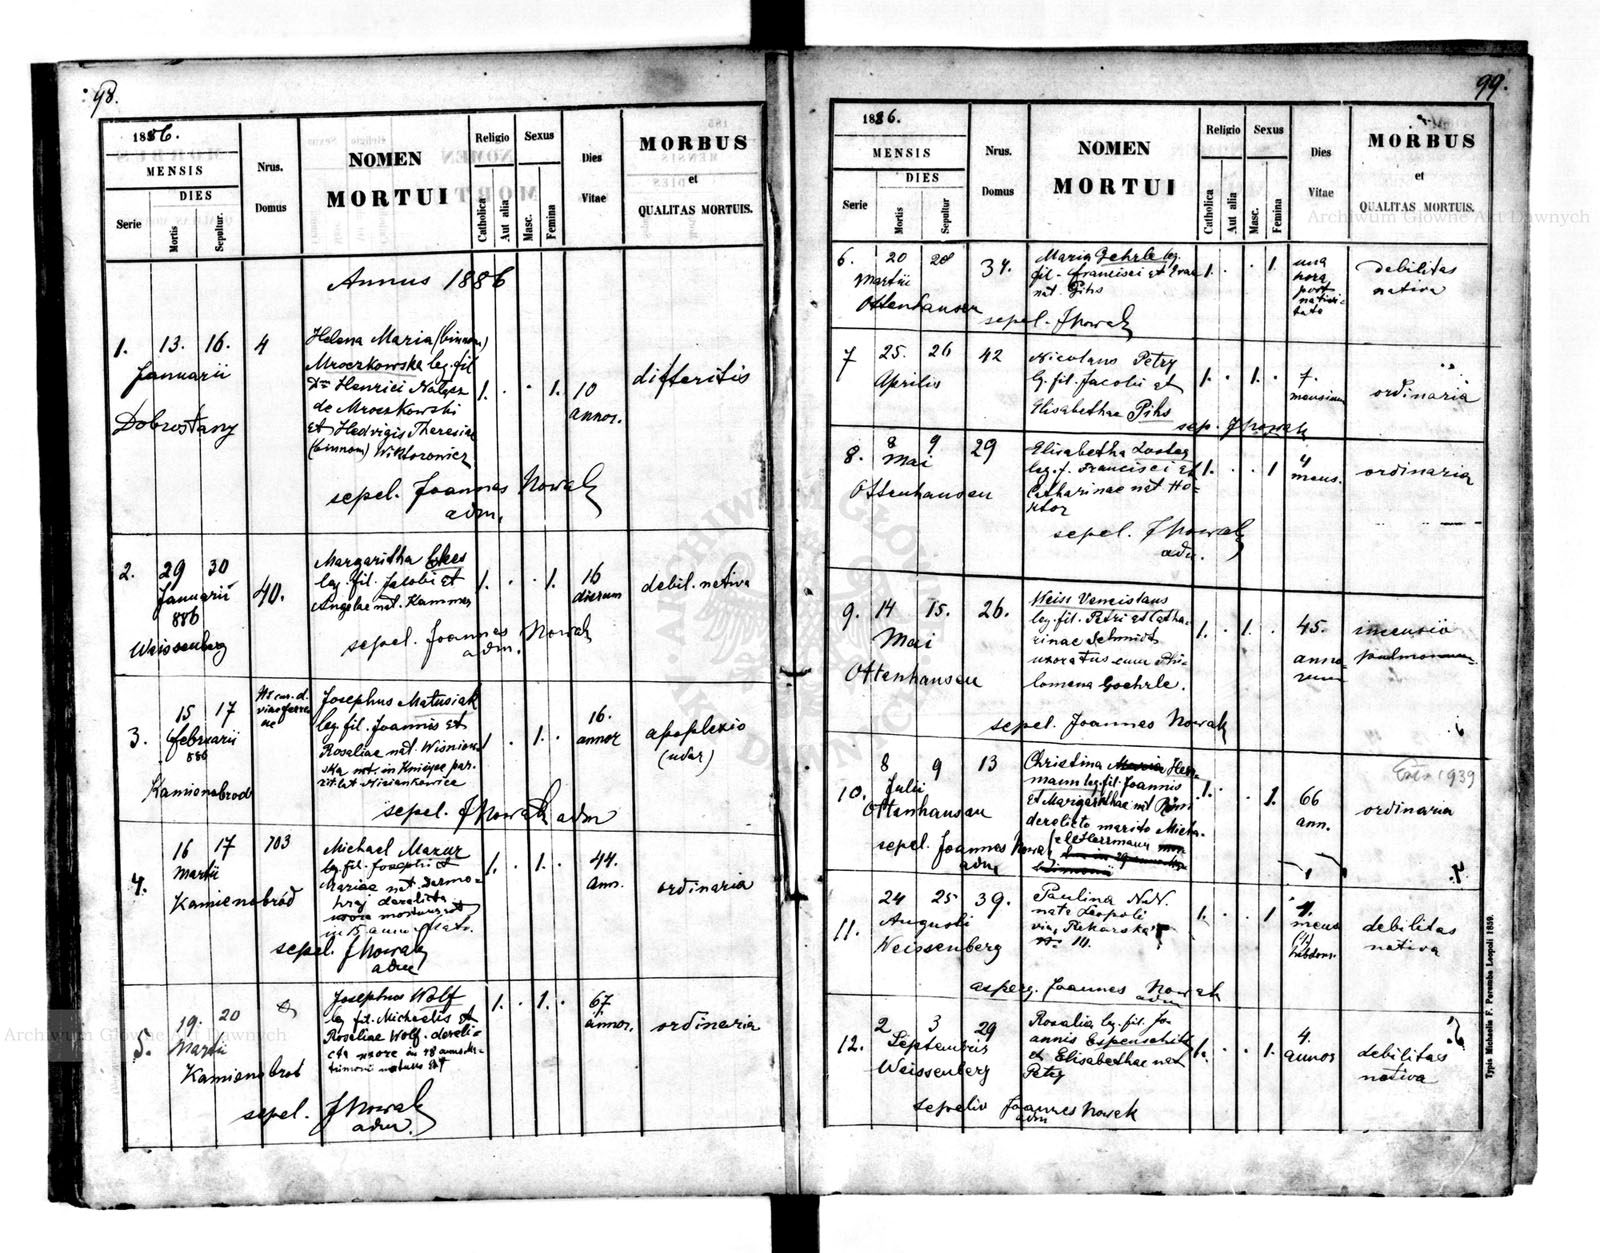 98.
1886.
MENSIS
DIES
Serie
Mortis
Sepultur.
Nrus.
Domus
NOMEN
MORTUI
Religio
Catholica
Aut alia
Sexus
Masc.
Femina
Dies
Vitae
MORBUS
et
QUALITAS MORTUIS.
Annus 1886
1. 13. 16. 4
Januarii
Dobrostany
Helena Maria (binom)
Mroczkowska leg. fil
Henrici Nałęcz
de Mroczkowski
et Hedvigis Theresiae
(binnom) Wiktorowicz
1. . . 1.
10
annor.
differitis
sepel. Joannes Nowak
adm.
2. 29 30 40.
Januarii
886
Weissenberg
Margaritha
leg. fil. Jacobi et
Angelae nat. Kammer
1. . . 1.
16
dierum
debil. nativa
sepel. Joannes Nowak
adm.
3. 15 17
februarii
886
Kamienobrod
Josephus Matusiak
leg. fil. Joannis et
Rosaliae nat. Wisniow-
ska nat. in
1 . 1. .
16.
annor
apoplexio
(udar)
sepel. J Nowak adm
4. 16 17 703
Martii
Kamienobród
Michael Mazur
leg. fil. Josephi et
Mariae nat.
derelicta
uxore
in 15 anno Matr.
1. . 1. .
44.
ann.
ordinaria
sepel. J Nowak
adm
5. 19. 20
Martii
Kamienobrod
Josephus Wolf
leg fil. Michaelis et
Rosaliae Wolf. dereli-
cta uxore in 18 anno ma-
trimonii
1. . 1. .
67
annor.
ordinaria
sepel. J Nowak
adm.
99.
1886.
MENSIS
DIES
Serie
Mortis
Sepultur.
Nrus.
Domus
NOMEN
MORTUI
Religio
Catholica
Aut alia
Sexus
Masc.
Femina
Dies
Vitae
MORBUS
et
QUALITAS MORTUIS.
6. 20 20 34.
Martii
Ottenhausen
Maria Gehrle leg.
fil. Francisci et Evae
nat. Pihs
1. . . 1.
una
hora
post
nativi-
tate
debilitas
nativa
sepel. J Nowak
7 25. 26 42
Aprilis
Nicolaus Petry
leg. fil. Jacobi et
Elisabethae Pihs
1. . 1. .
7.
mensium
ordinaria
sep. J Nowak
8. 8 9 29
Mai
Ottenhausen
Elisabetha
leg. f. Francisci et
Catharinae nat. Ho-
1. . . 1
4
mens.
ordinaria
sepel. J Nowak
adm.
9. 14 15. 26.
Mai
Ottenhausen
Weiss Venceslaus
leg. fil. Petri et Catha-
rinae Schmidt
uxoratus cum Phi-
lomena Goehrle.
1. . 1. .
45.
anno-
rum
pulmonum
sepel. Joannes Nowak
10. 8 9 13
Julii
Ottenhausen
Christina Maria Her-
mann leg. fil. Joannis
et Margarethae nat
derelicto marito Micha-
ele Herrmann
1. . . 1.
66
ann.
1939
ordinaria
sepel. Joannes Nowak
adm
11. 24 25 39.
Augusti
Weissenberg
Paulina N.N.
nata Leopoli
via "Piekarska"
No 14.
1. . . 1
4.
mens
debilitas
nativa
asperg. Joannes Nowak
adm
12. 2 3 29
Septembris
Weissenberg
Rosalia leg. fil. Jo-
annis Espenschit
et Elisabethae nat
Petry
1. . . 1.
4.
annos
debilitas
nativa
sepelio Joannes Nowak
adm
Typis Michaelis F. Poremba Leopoli 1859.
Archiwum Główne Akt Dawnych
Archiwum Główne Akt Dawnych